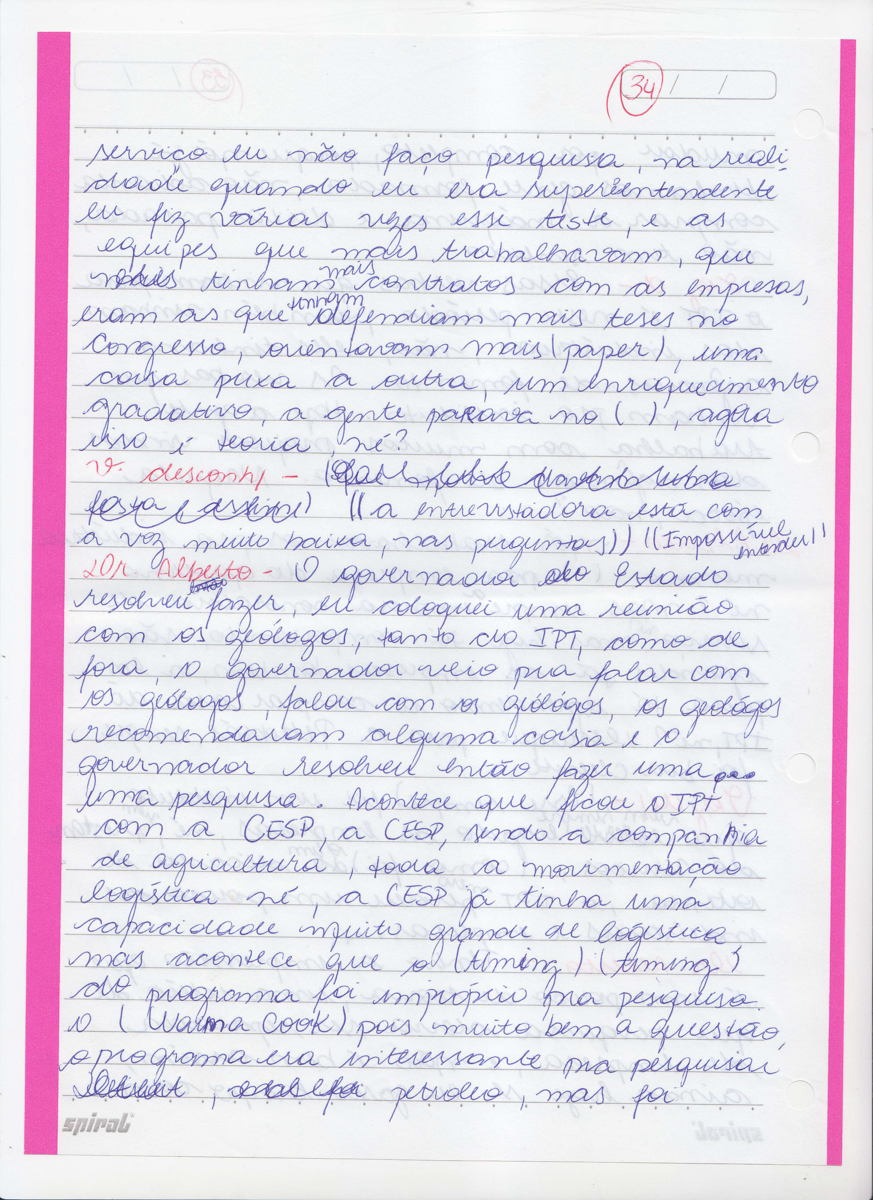 34 / /
serviço eu não faço pesquisa, na reali-
dade quando eu era superientendente
eu fiz várias vezes esse teste, e as
equipes que mais trabalhavam, que
tinham mais contratos com as empresas,
eram as que tinham defendiam mais teses no
Congresso, orientavam mais (paper), uma
coisa puxa a outra, um enriquecimento
gradativo, a gente parava no ( ), agora
isso é teoria, né?
v. desconh/ -
((a entrevistadora está com
a voz muito baixa, nas perguntas)) ((Impossível entender))
Dr Alberto - O governador do Estado
resolveu fazer, eu coloquei uma reunião
com os geólogos, tanto do IPT, como de
fora, o governador veio pra falar com
os geólogos, falou com os geólogos, os geológos
recomendaram alguma coisa e o
governador resolveu então fazer uma
uma pesquisa. Acontece que ficou o IPT
com a CESP, a CESP, sendo a companhia
de agricultura, toda a movimentação
logística né, a CESP já tinha uma
capacidade muito grande de logística
mas acontece que o (timing) (timing)
do programa foi impróprio pra pesquisa.
o (Warma Cook) pois muito bem a questão,
o programa era interessante pra pesquisar
, petróleo, mas foi
spiral